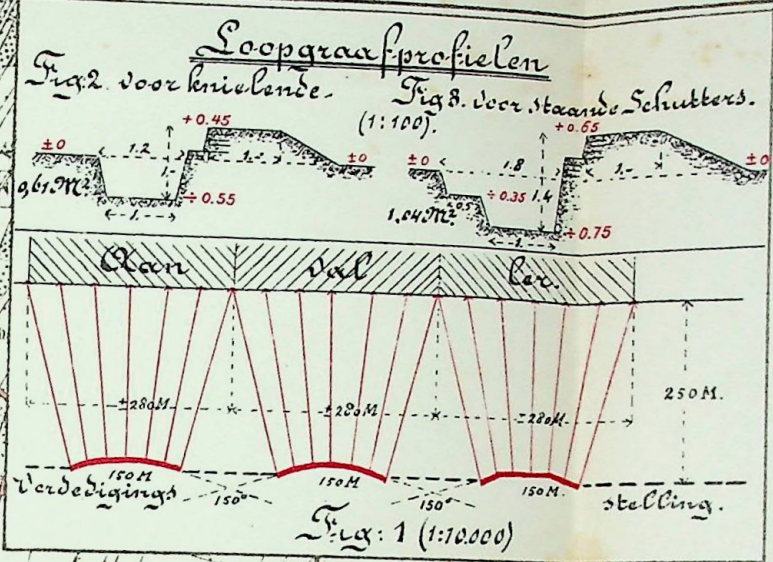 Loopgraafprofielen
Fig: 2. voor knielende.
Fig 3. voor staande Schutters.
(1:100).
+0.45
±0
1.2
1.-
1.-
±0
0,61 M²
÷0.55
1.-
+0.65
±0
1.8
÷0.35
1.4
1.-
±0
0.5
1,04 M²
1.-
÷0.75
Aan val ler.
±280M
±280M
±280M
250 M.
150 M
150 M
150 M.
Verdedigings stelling.
150°
150°
Fig: 1 (1:10.000)